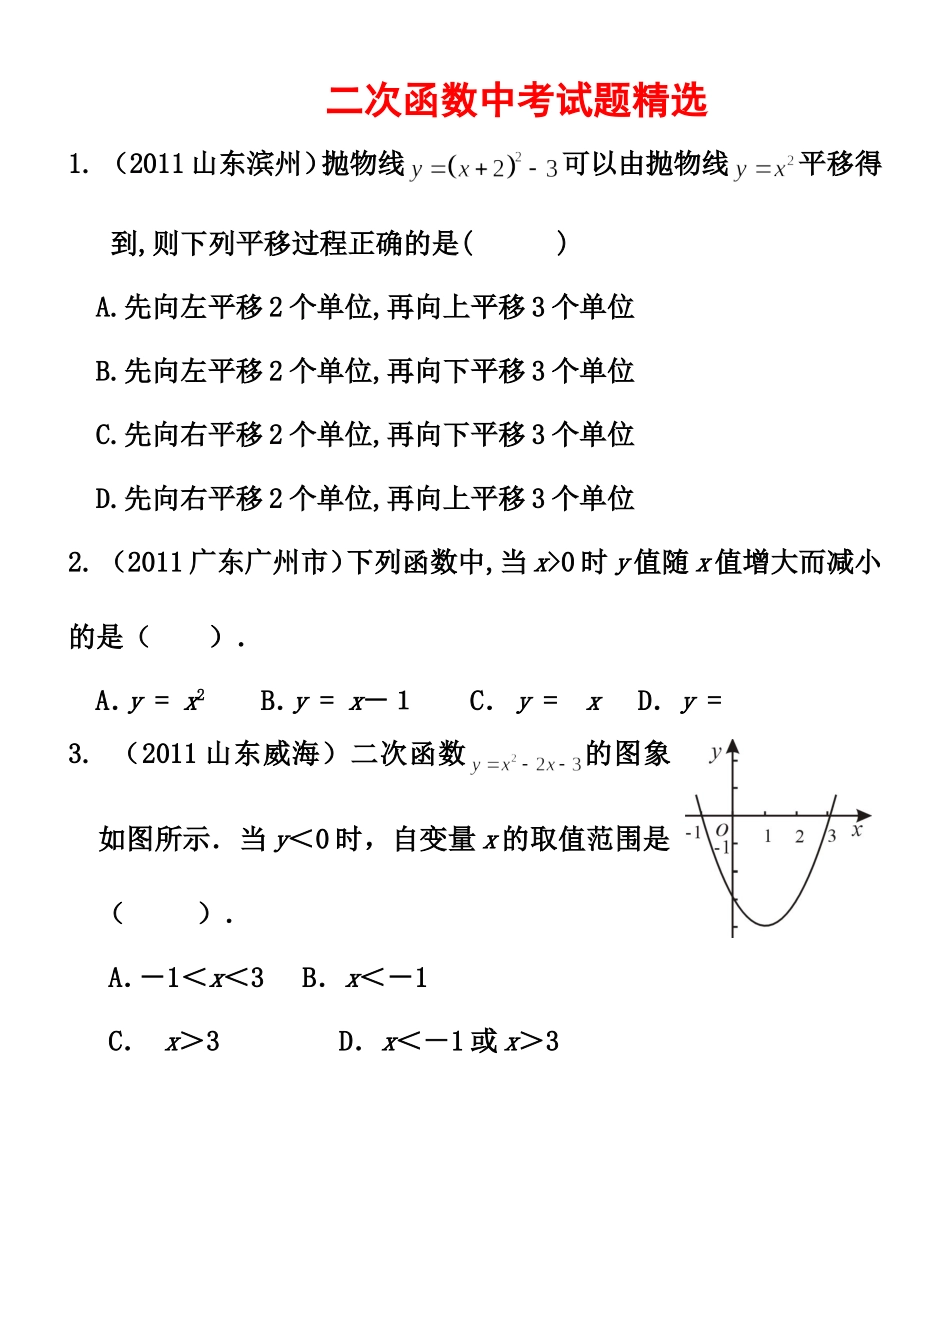 二次函数中考试题精选
1. （2011山东滨州）抛物线 y=(x+2)²-3 可以由抛物线 y=x² 平移得
到,则下列平移过程正确的是(      )
A.先向左平移2个单位,再向上平移3个单位
B.先向左平移2个单位,再向下平移3个单位
C.先向右平移2个单位,再向下平移3个单位
D.先向右平移2个单位,再向上平移3个单位
2. （2011广东广州市）下列函数中,当x>0时y值随x值增大而减小
的是（    ）.
A.y = x²    B.y = x－1    C. y =  x    D. y =
3. （2011山东威海）二次函数 y=x²-2x-3 的图象
如图所示．当y＜0时，自变量x的取值范围是
（    ）.
A.－1＜x＜3    B. x＜－1
C.  x＞3    D. x＜－1或x＞3
y
-1 O 1 2 3 x
-1